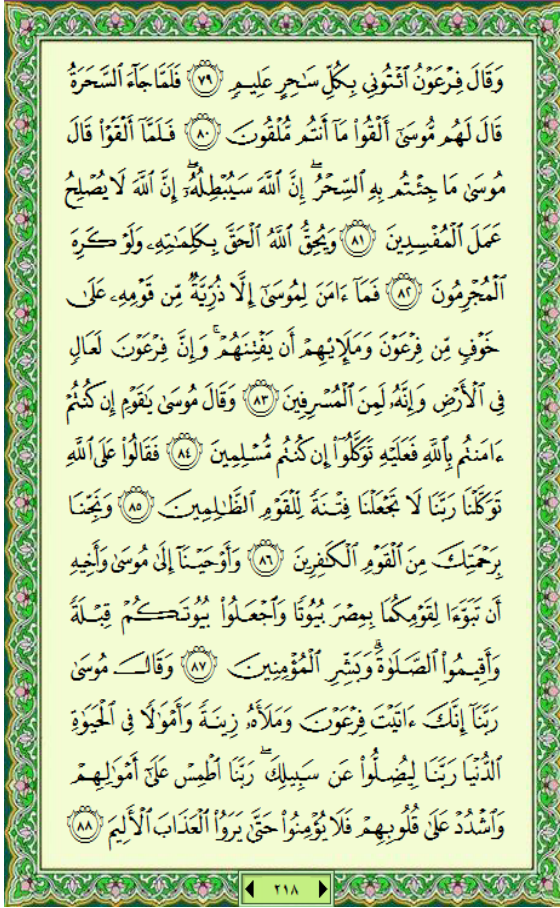 وَقَالَ فِرْعَوْنُ ٱئْتُونِي بِكُلِّ سَٰحِرٍ عَلِيمٍ ﴿٧٩﴾ فَلَمَّا جَآءَ ٱلسَّحَرَةُ
قَالَ لَهُم مُّوسَىٰٓ أَلْقُوا۟ مَآ أَنتُم مُّلْقُونَ ﴿٨٠﴾ فَلَمَّآ أَلْقَوْا۟ قَالَ
مُوسَىٰ مَا جِئْتُم بِهِ ٱلسِّحْرُ ۖ إِنَّ ٱللَّهَ سَيُبْطِلُهُۥٓ ۖ إِنَّ ٱللَّهَ لَا يُصْلِحُ
عَمَلَ ٱلْمُفْسِدِينَ ﴿٨١﴾ وَيُحِقُّ ٱللَّهُ ٱلْحَقَّ بِكَلِمَٰتِهِۦ وَلَوْ كَرِهَ
ٱلْمُجْرِمُونَ ﴿٨٢﴾ فَمَآ ءَامَنَ لِمُوسَىٰٓ إِلَّا ذُرِّيَّةٌ مِّن قَوْمِهِۦ عَلَىٰ
خَوْفٍ مِّن فِرْعَوْنَ وَمَلَإِي۟هِمْ أَن يَفْتِنَهُمْ ۚ وَإِنَّ فِرْعَوْنَ لَعَالٍ
فِي ٱلْأَرْضِ وَإِنَّهُۥ لَمِنَ ٱلْمُسْرِفِينَ ﴿٨٣﴾ وَقَالَ مُوسَىٰ يَٰقَوْمِ إِن كُنتُمْ
ءَامَنتُم بِٱللَّهِ فَعَلَيْهِ تَوَكَّلُوٓا۟ إِن كُنتُم مُّسْلِمِينَ ﴿٨٤﴾ فَقَالُوا۟ عَلَى ٱللَّهِ
تَوَكَّلْنَا رَبَّنَا لَا تَجْعَلْنَا فِتْنَةً لِّلْقَوْمِ ٱلظَّٰلِمِينَ ﴿٨٥﴾ وَنَجِّنَا
بِرَحْمَتِكَ مِنَ ٱلْقَوْمِ ٱلْكَٰفِرِينَ ﴿٨٦﴾ وَأَوْحَيْنَآ إِلَىٰ مُوسَىٰ وَأَخِيهِ
أَن تَبَوَّءَا لِقَوْمِكُمَا بِمِصْرَ بُيُوتًا وَٱجْعَلُوا۟ بُيُوتَكُمْ قِبْلَةً
وَأَقِيمُوا۟ ٱلصَّلَوٰةَ ۗ وَبَشِّرِ ٱلْمُؤْمِنِينَ ﴿٨٧﴾ وَقَالَ مُوسَىٰ
رَبَّنَآ إِنَّكَ ءَاتَيْتَ فِرْعَوْنَ وَمَلَأَهُۥ زِينَةً وَأَمْوَٰلًا فِي ٱلْحَيَوٰةِ
ٱلدُّنْيَا رَبَّنَا لِيُضِلُّوا۟ عَن سَبِيلِكَ ۖ رَبَّنَا ٱطْمِسْ عَلَىٰٓ أَمْوَٰلِهِمْ
وَٱشْدُدْ عَلَىٰ قُلُوبِهِمْ فَلَا يُؤْمِنُوا۟ حَتَّىٰ يَرَوُا۟ ٱلْعَذَابَ ٱلْأَلِيمَ ﴿٨٨﴾
٢١٨